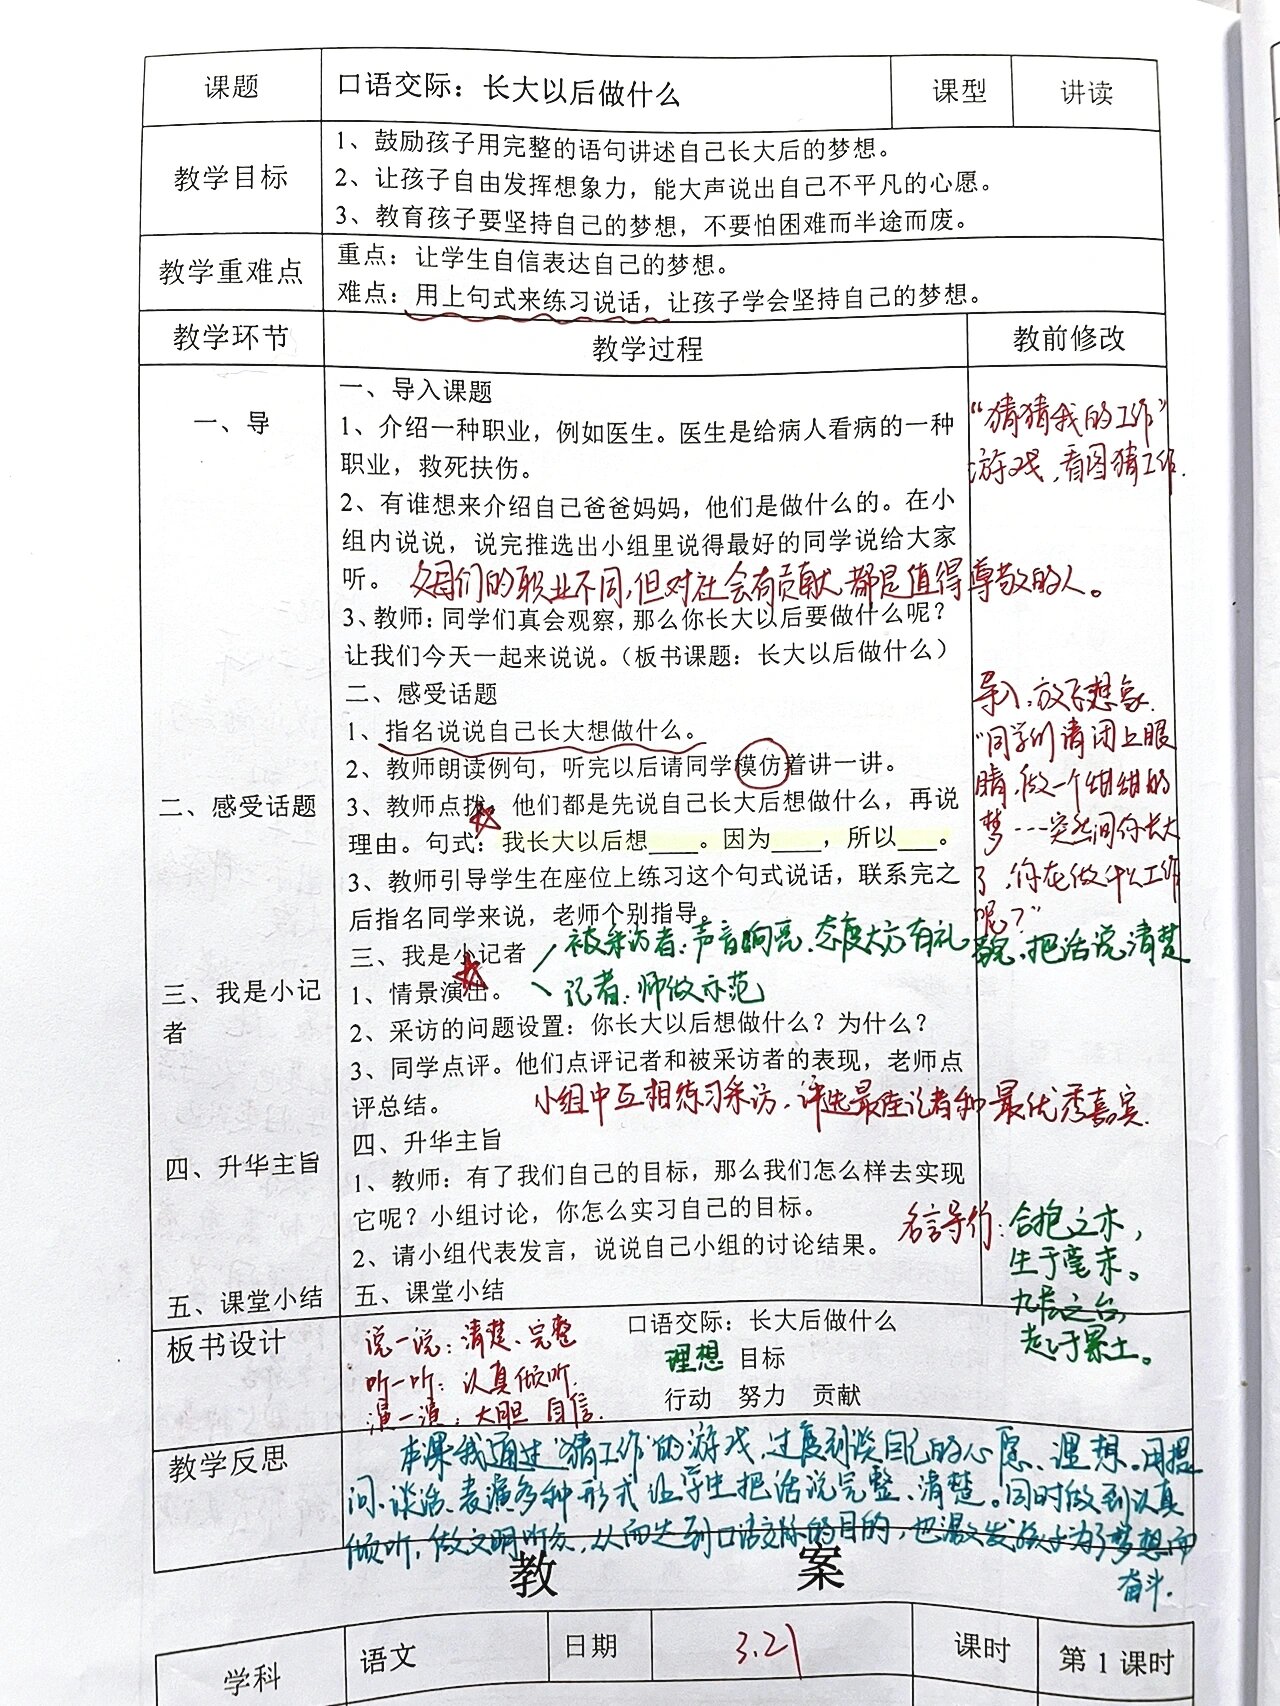 课题 口语交际：长大以后做什么 课型 讲读
教学目标
1、鼓励孩子用完整的语句讲述自己长大后的梦想。
2、让孩子自由发挥想象力，能大声说出自己不平凡的心愿。
3、教育孩子要坚持自己的梦想，不要怕困难而半途而废。
教学重难点
重点：让学生自信表达自己的梦想。
难点：用上句式来练习说话，让孩子学会坚持自己的梦想。
教学环节 教学过程 教前修改
一、导
一、导入课题
1、介绍一种职业，例如医生。医生是给病人看病的一种
职业，救死扶伤。
“猜猜我的工作”
游戏，看图猜工作.
2、有谁想来介绍自己爸爸妈妈，他们是做什么的。在小
组内说说，说完推选出小组里说得最好的同学说给大家
听。
父母们的职业不同，但对社会有贡献，都是值得尊敬的人。
3、教师：同学们真会观察，那么你长大以后要做什么呢？
让我们今天一起来说说。（板书课题：长大以后做什么）
二、感受话题
二、感受话题
1、指名说说自己长大想做什么。
2、教师朗读例句，听完以后请同学模仿着讲一讲。
3、教师点拨。他们都是先说自己长大后想做什么，再说
理由。句式：我长大以后想____。因为____，所以___。
3、教师引导学生在座位上练习这个句式说话，联系完之
后指名同学来说，老师个别指导。
导入，放飞想象.
“同学们请闭上眼
睛，做一个甜甜的
梦……突然间你长大
了，你在做什么工作
呢？”
三、我是小记
者
三、我是小记者
被采访者：声音响亮、态度大方有礼貌、把话说清楚
1、情景演出。
记者：师做示范
2、采访的问题设置：你长大以后想做什么？为什么？
3、同学点评。他们点评记者和被采访者的表现，老师点
评总结。
小组中互相练习采访，评选最佳记者和最优秀嘉宾.
四、升华主旨
四、升华主旨
1、教师：有了我们自己的目标，那么我们怎么样去实现
它呢？小组讨论，你怎么实习自己的目标。
2、请小组代表发言，说说自己小组的讨论结果。
名言导行：合抱之木，
生于毫末。
九层之台，
起于累土。
五、课堂小结
五、课堂小结
板书设计
口语交际：长大后做什么
理想 目标
行动 努力 贡献
说一说：清楚、完整
听一听：认真倾听.
演一演：大胆 自信.
教学反思
本课我通过“猜工作”的游戏，过度到谈自己的心愿、理想，用提
问、谈话、表演多种形式让学生把话说完整、清楚。同时做到认真
倾听，做文明听众，从而达到口语交际的目的，也激发孩子为了梦想而
奋斗.
教 案
学科 语文 日期 3.21 课时 第 1 课时